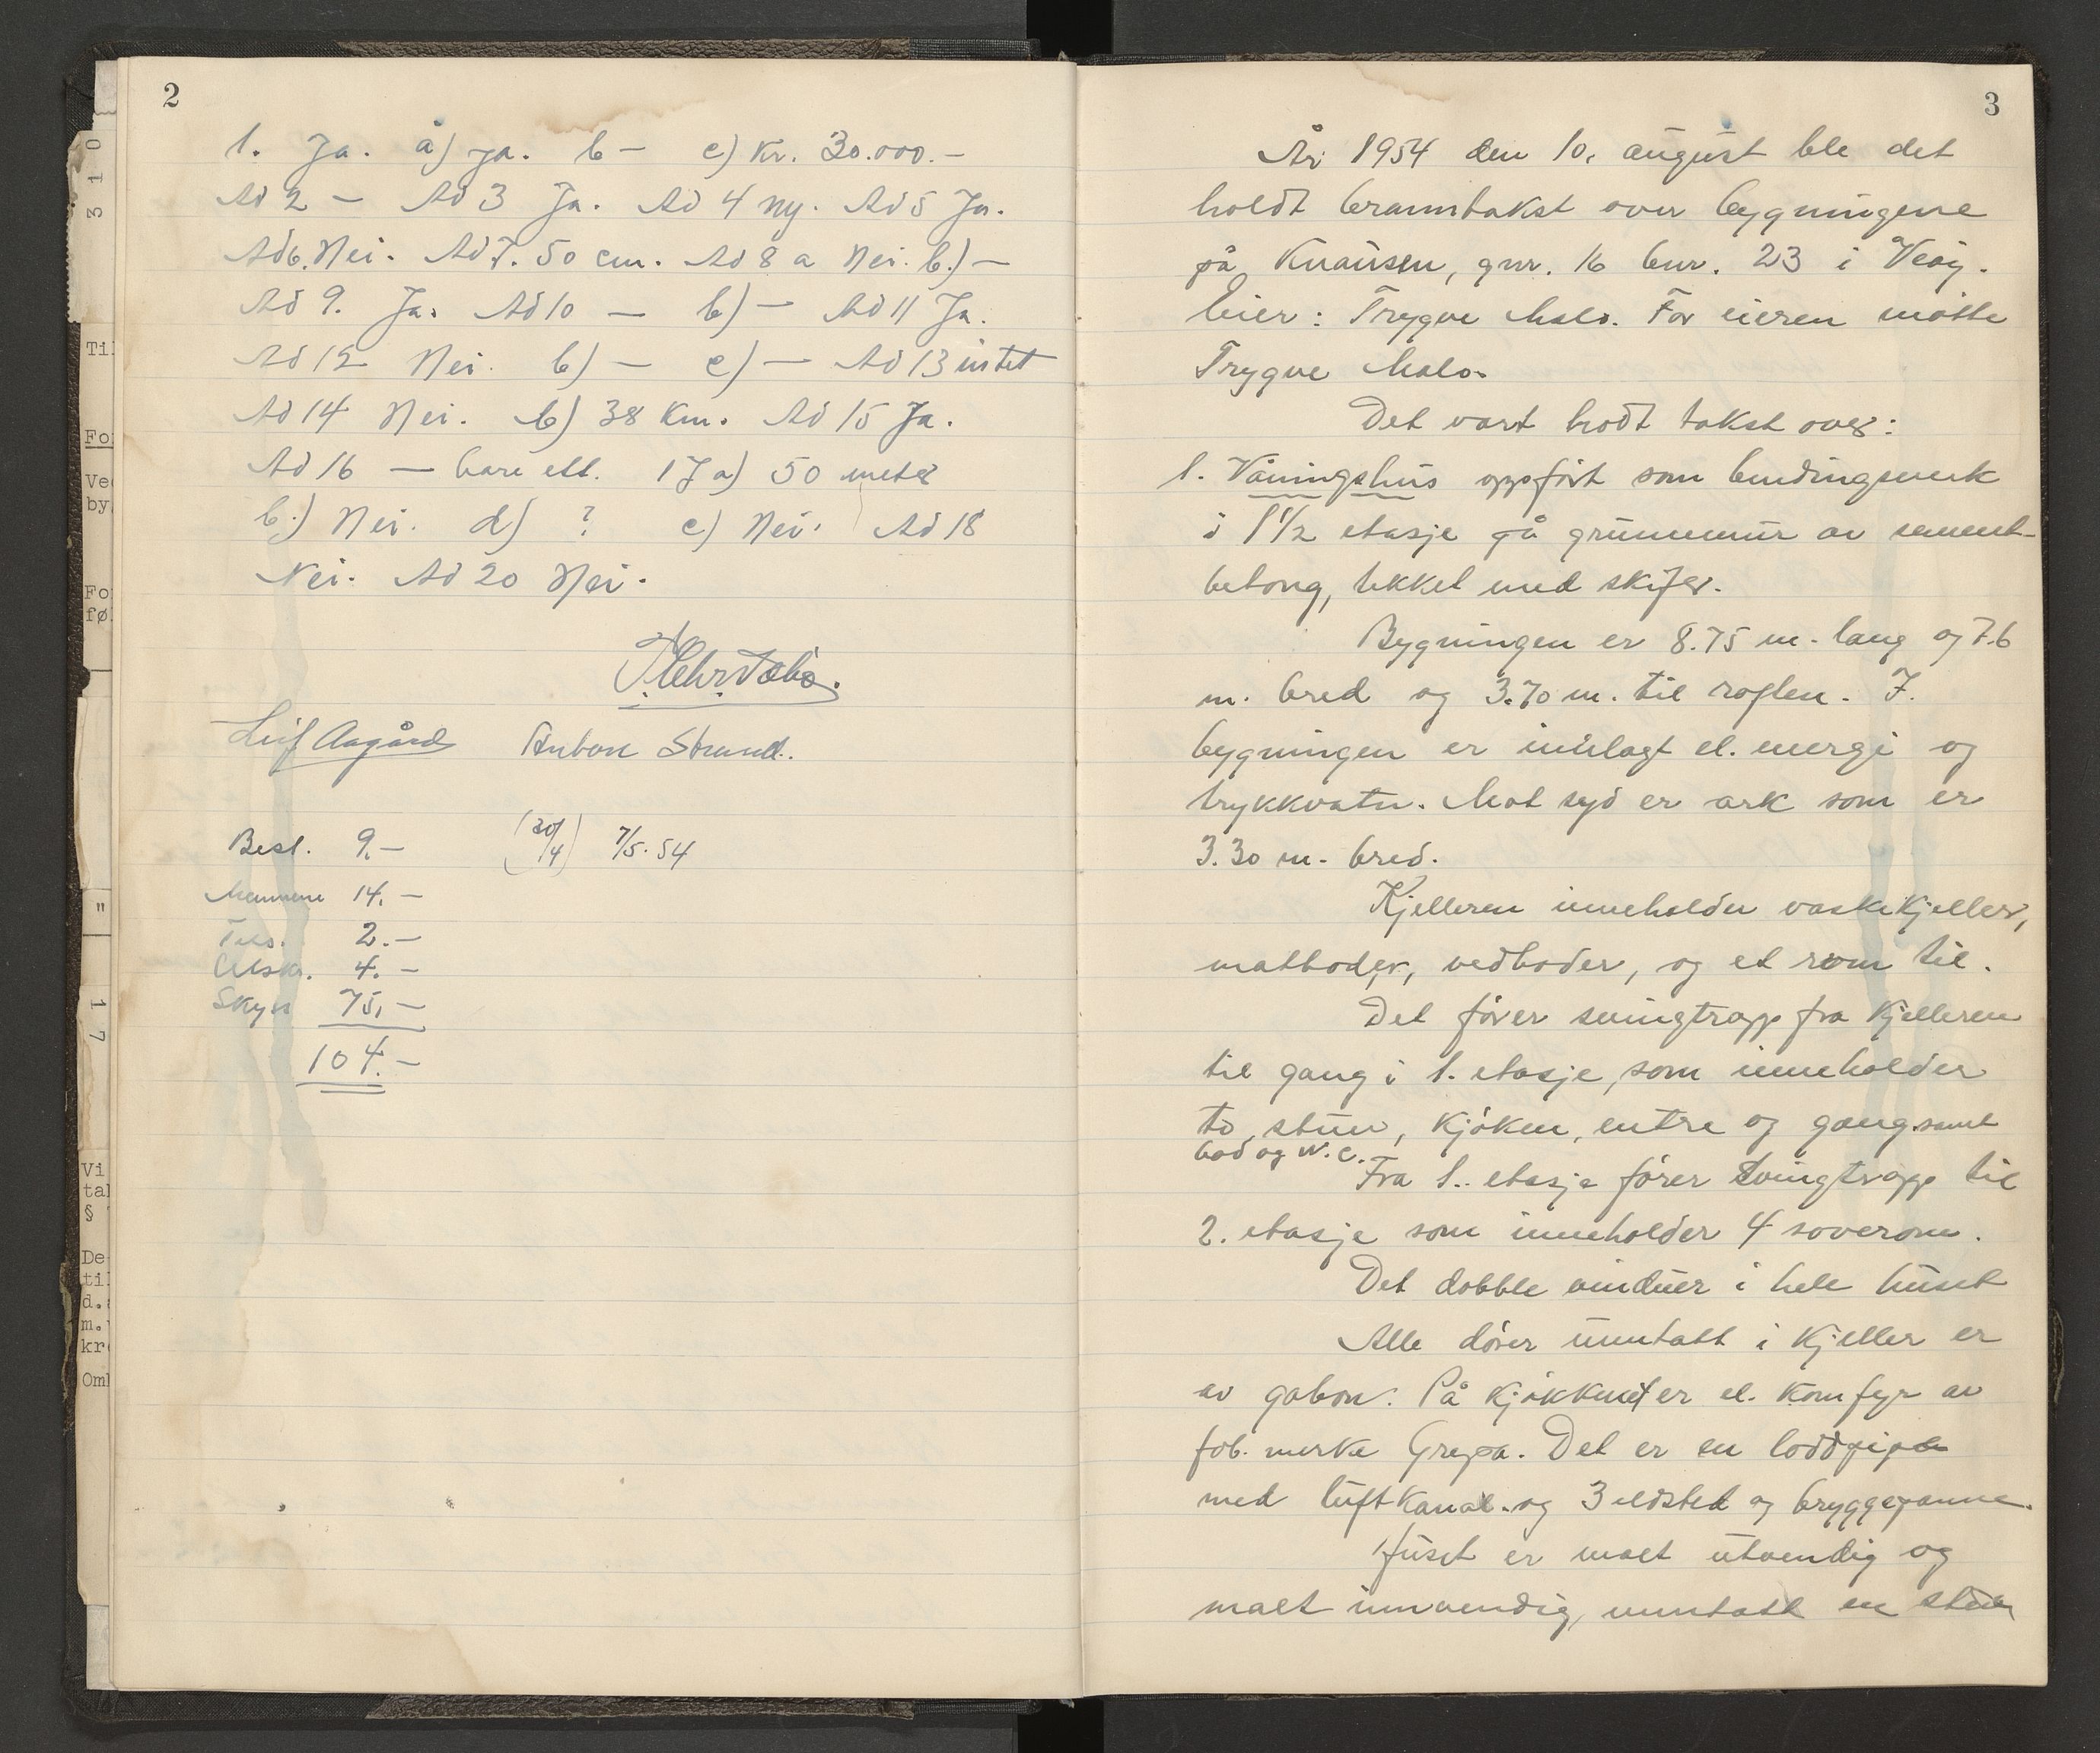 2
1. Ja. a) ja. b - c) Kr. 30.000.-
Ad 2 - Ad 3 Ja. Ad 4 ny. Ad 5 Ja.
Ad 6. Nei. Ad 7. 50 cm. Ad 8 a Nei. b.) -
Ad 9. Ja. Ad 10 - b) - Ad 11 Ja.
Ad 12 Nei. b) - c) - Ad 13 intet
Ad 14 Nei. b) 38 Km. Ad 15 Ja.
Ad 16 - bare ett. 17 a) 50 meter
b.) Nei. d) ? e) Nei. Ad 18
Nei. Ad 20 Nei.
Leif Aagård Anton Strand.
Best. 9.- (30/4) 7/5. 54
Mennene 14.-
2.-
Utskr. 4.-
Skyss 75,-
104.-
3
År 1954 den 10. august ble det
holdt branntakst over bygningene
på Knausen, gnr. 16 bnr. 23 i Veøy.
Eier: Trygve Malo. For eieren møtte
Trygve Malo.
Det vart hodt takst over:
1. Våningshus oppført som bindingsverk
i 1 1/2 etasje på grunnmur av sement-
betong, tekket med skifer.
Bygningen er 8.75 m. lang og 7.6
m. bred og 3.70 m. til raften. I
bygningen er innlagt el. energi og
trykkvatn. Mot syd er ark som er
3.30 m. bred.
Kjelleren inneholder vaskekjeller,
matboder, vedboder, og et rom til.
Det fører svingtrapp fra kjelleren
til gang i 1. etasje, som inneholder
to stuer, kjøken, entre og gang samt
bod og W.C.
Fra 1. etasje fører svingtrapp til
2. etasje som inneholder 4 soverom.
Det dobble vinduer i hele huset
Alle dører unntatt i kjeller er
av gabon. På kjøkkenet er el. komfyr av
fab. merke Grepa. Det er en loddpipe
med luftkanal. og 3 ildsted og bryggepanne.
Huset er malt utvendig og
malt innvendig, unntatt en stue